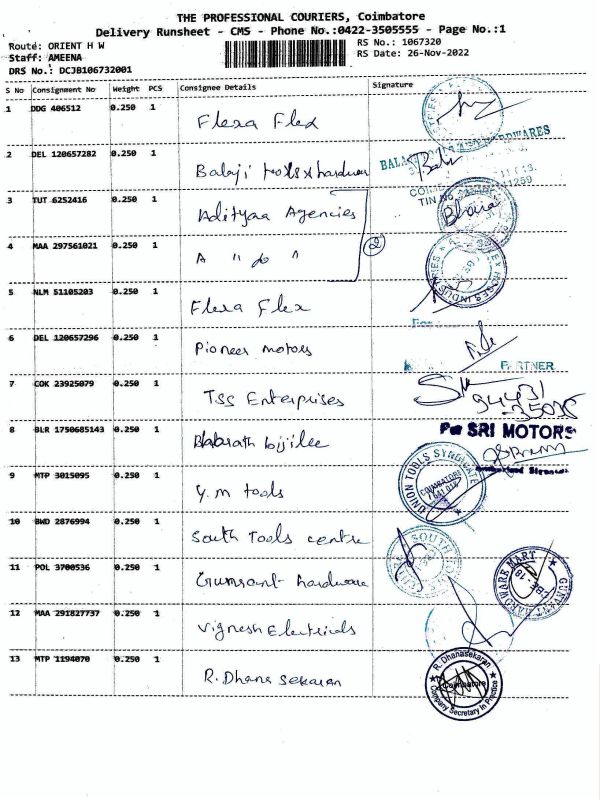 THE PROFESSIONAL COURIERS, Coimbatore
Delivery Runsheet - CMS - Phone No.:0422-3505555 - Page No.:1
Route: ORIENT H W
RS No.: 1067320
Staff: AMEENA
RS Date: 26-Nov-2022
DRS No.: DCJB106732001
S No Consignment No Weight PCS Consignee Details Signature
1 DDG 406512 0.250 1 Flexa Flex
2 DEL 120657282 0.250 1 Balaji tools & hardware
HARDWARES
TIN No
3 TUT 6252416 0.250 1 Adityaa Agencies
4 MAA 297561021 0.250 1 A " do "
2
5 NLM 51105203 0.250 1 Flexa Flex
6 DEL 120657296 0.250 1 Pioneer motors
PARTNER
7 COK 23925079 0.250 1 TSS Enterprises
94431
35025
8 BLR 1750685143 0.250 1 Bharath bijilee
For SRI MOTORS
9 MTP 3015095 0.250 1 Y.M tools
UNION TOOLS SYNDICATE
COIMBATORE
641 018
10 BWD 2876994 0.250 1 South Tools centre
SOUTH
11 POL 3700536 0.250 1 Gunvant hardware
GUNVANT HARDWARE MART
CBE-18
12 MAA 291827737 0.250 1 Vignesh Electricals
13 MTP 1194070 0.250 1 R. Dhana sekaran
R. Dhanasekaran
Coimbatore
Company Secretary in Practice